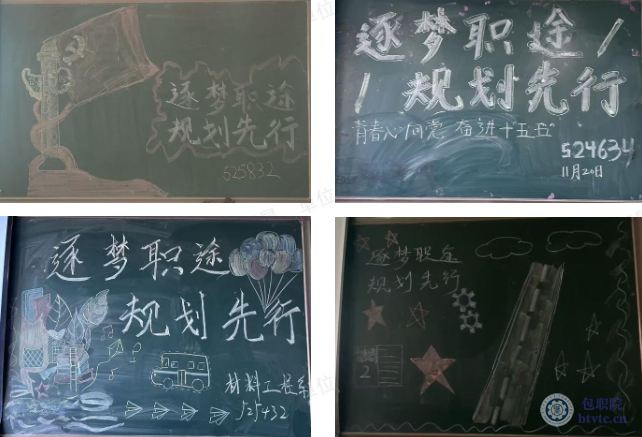 逐梦职途
规划先行
525832
逐梦职途
规划先行
青春心向党 奋进十五五
524634
11月20日
逐梦职途
规划先行
材料工程系
525432
逐梦职途
规划先行
包职院
btvtc.cn